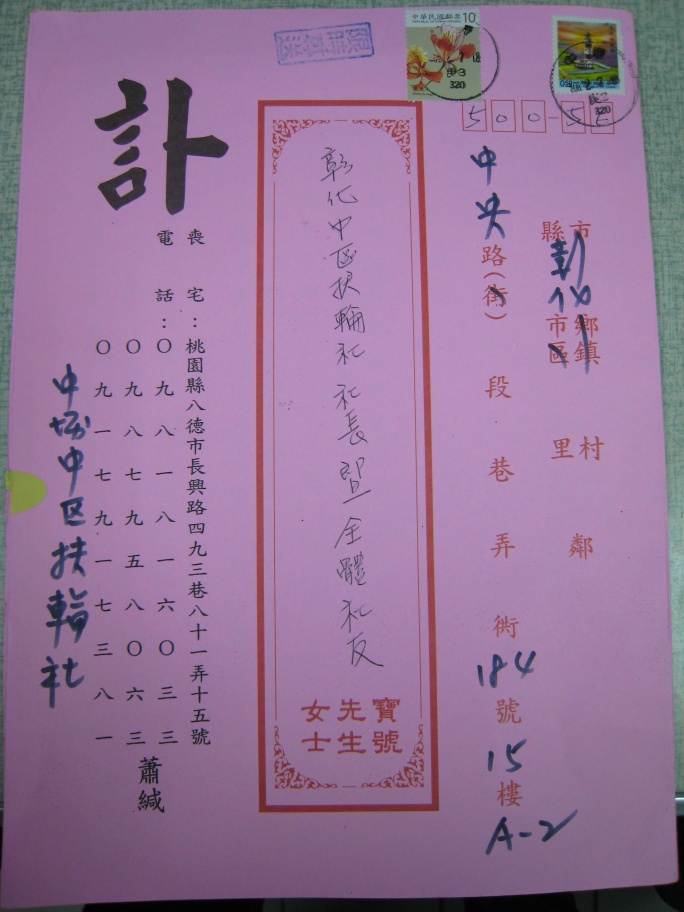 限時專送
中華民國郵票 10
320
320
500-55
縣市
彰化
市區鄉鎮
里村
鄰
中央路(街)段巷弄衖184號15樓
A-2
彰化中區扶輪社 社長 暨 全體社友
寶號
先生
女士
訃
喪宅：桃園縣八德市長興路四九三巷八十一弄十五號
電話：〇九八一八一六〇三三
〇九八七九五八〇六三
〇九一七九一七三八一
蕭緘
中壢中区扶輪社